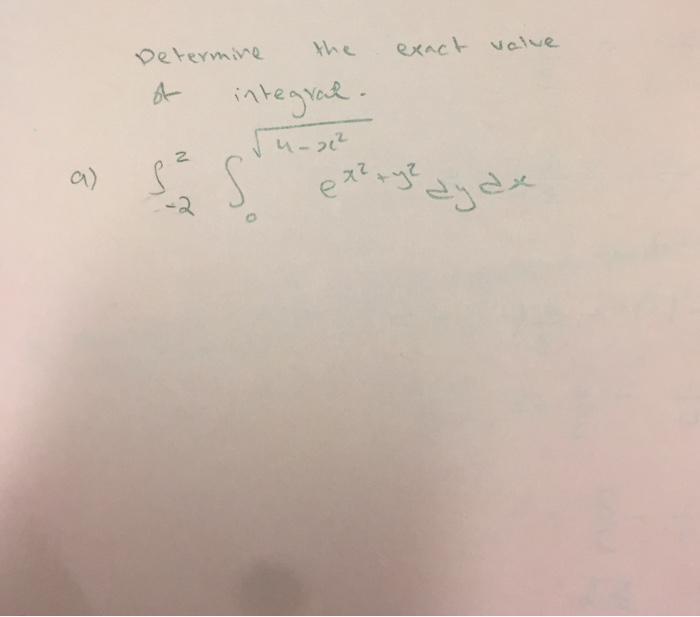 Determine the exact value
of integral.
a) ∫_{-2}^{2} ∫_{0}^{√(4-x²)} e^{x²+y²} dy dx